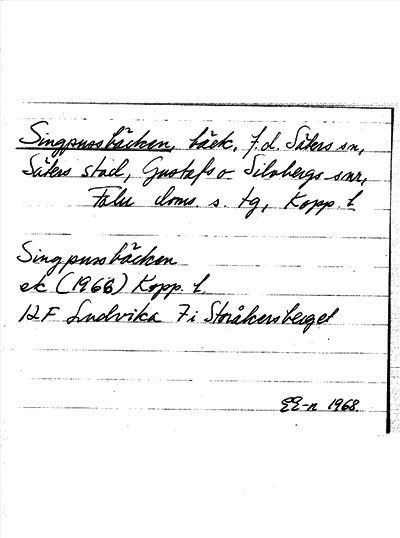 Singpussbäcken, bäck, f.d. Säters sn,
Säters stad, Gustafs o Silvbergs snr,
Falu doms. s. tg, Kopp. l
Singpussbäcken
ek (1966) Kopp. l.
12F Ludvika 7i Storåkersberget
EE-n 1968.